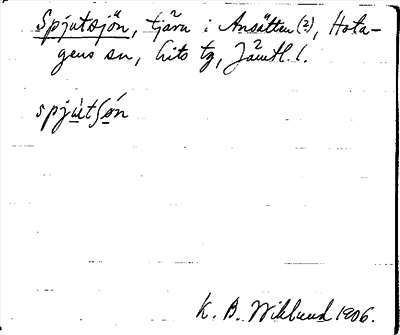 Spjutsjön, tjärn i Ansätten (?), Hota-
gens sn, Lits tg, Jämtl. l.
spjùtʃön
K. B. Wiklund 1906.